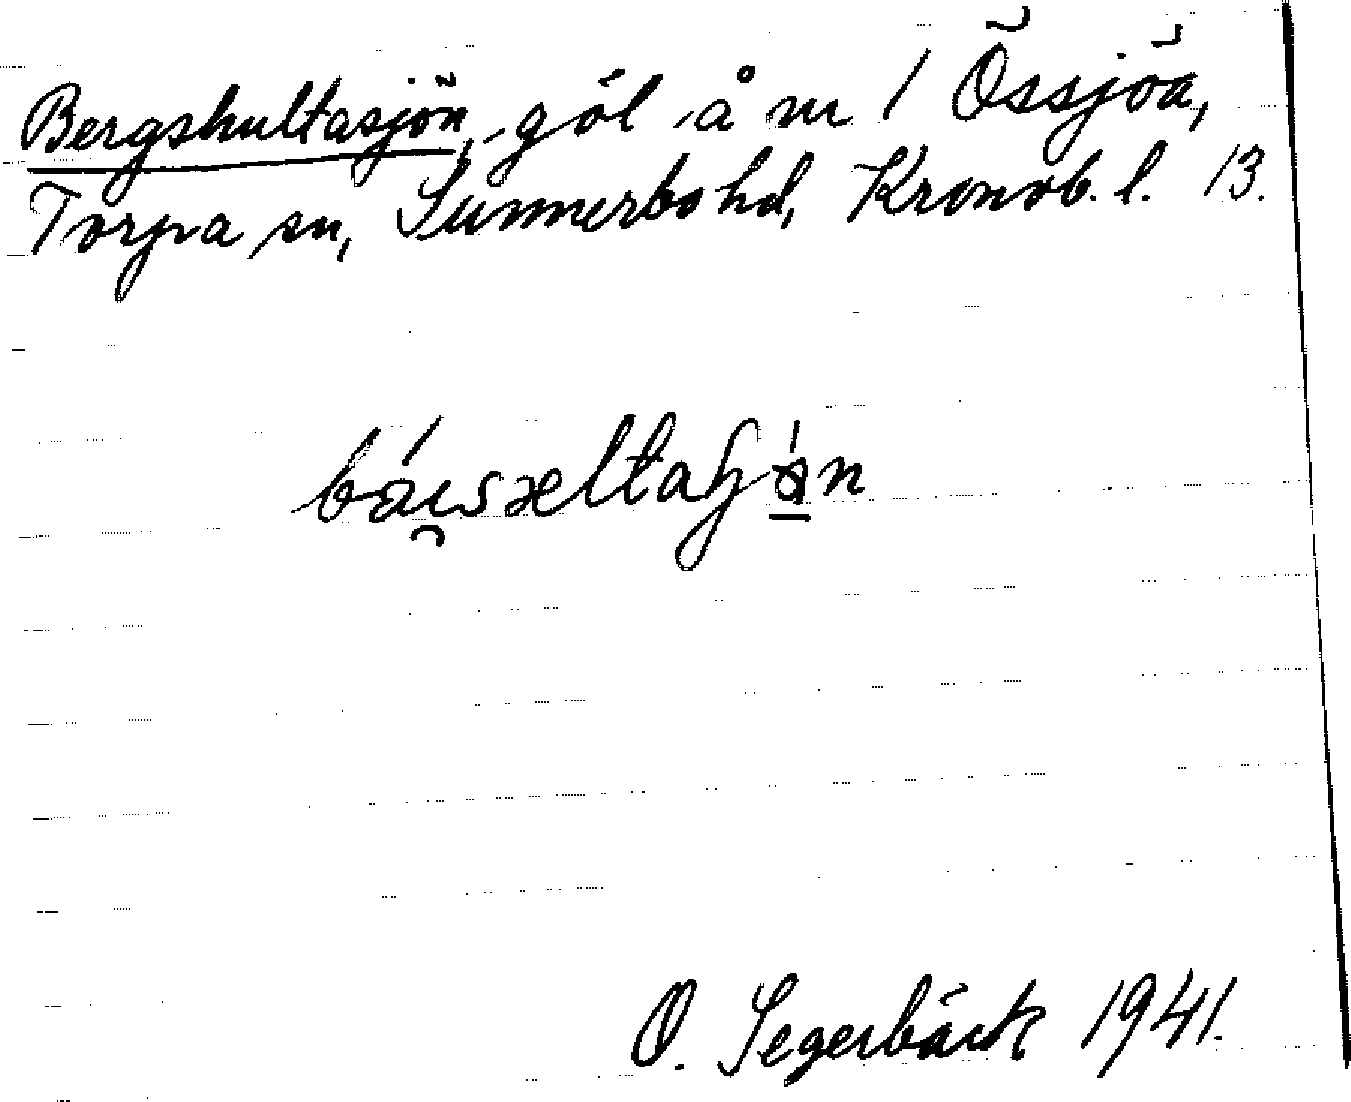 Bergshultasjön, göl å m / Össjöa,
Torpa sn, Sunnerbo hd, Kronob. l. 13.
O. Segerbäck 1941.